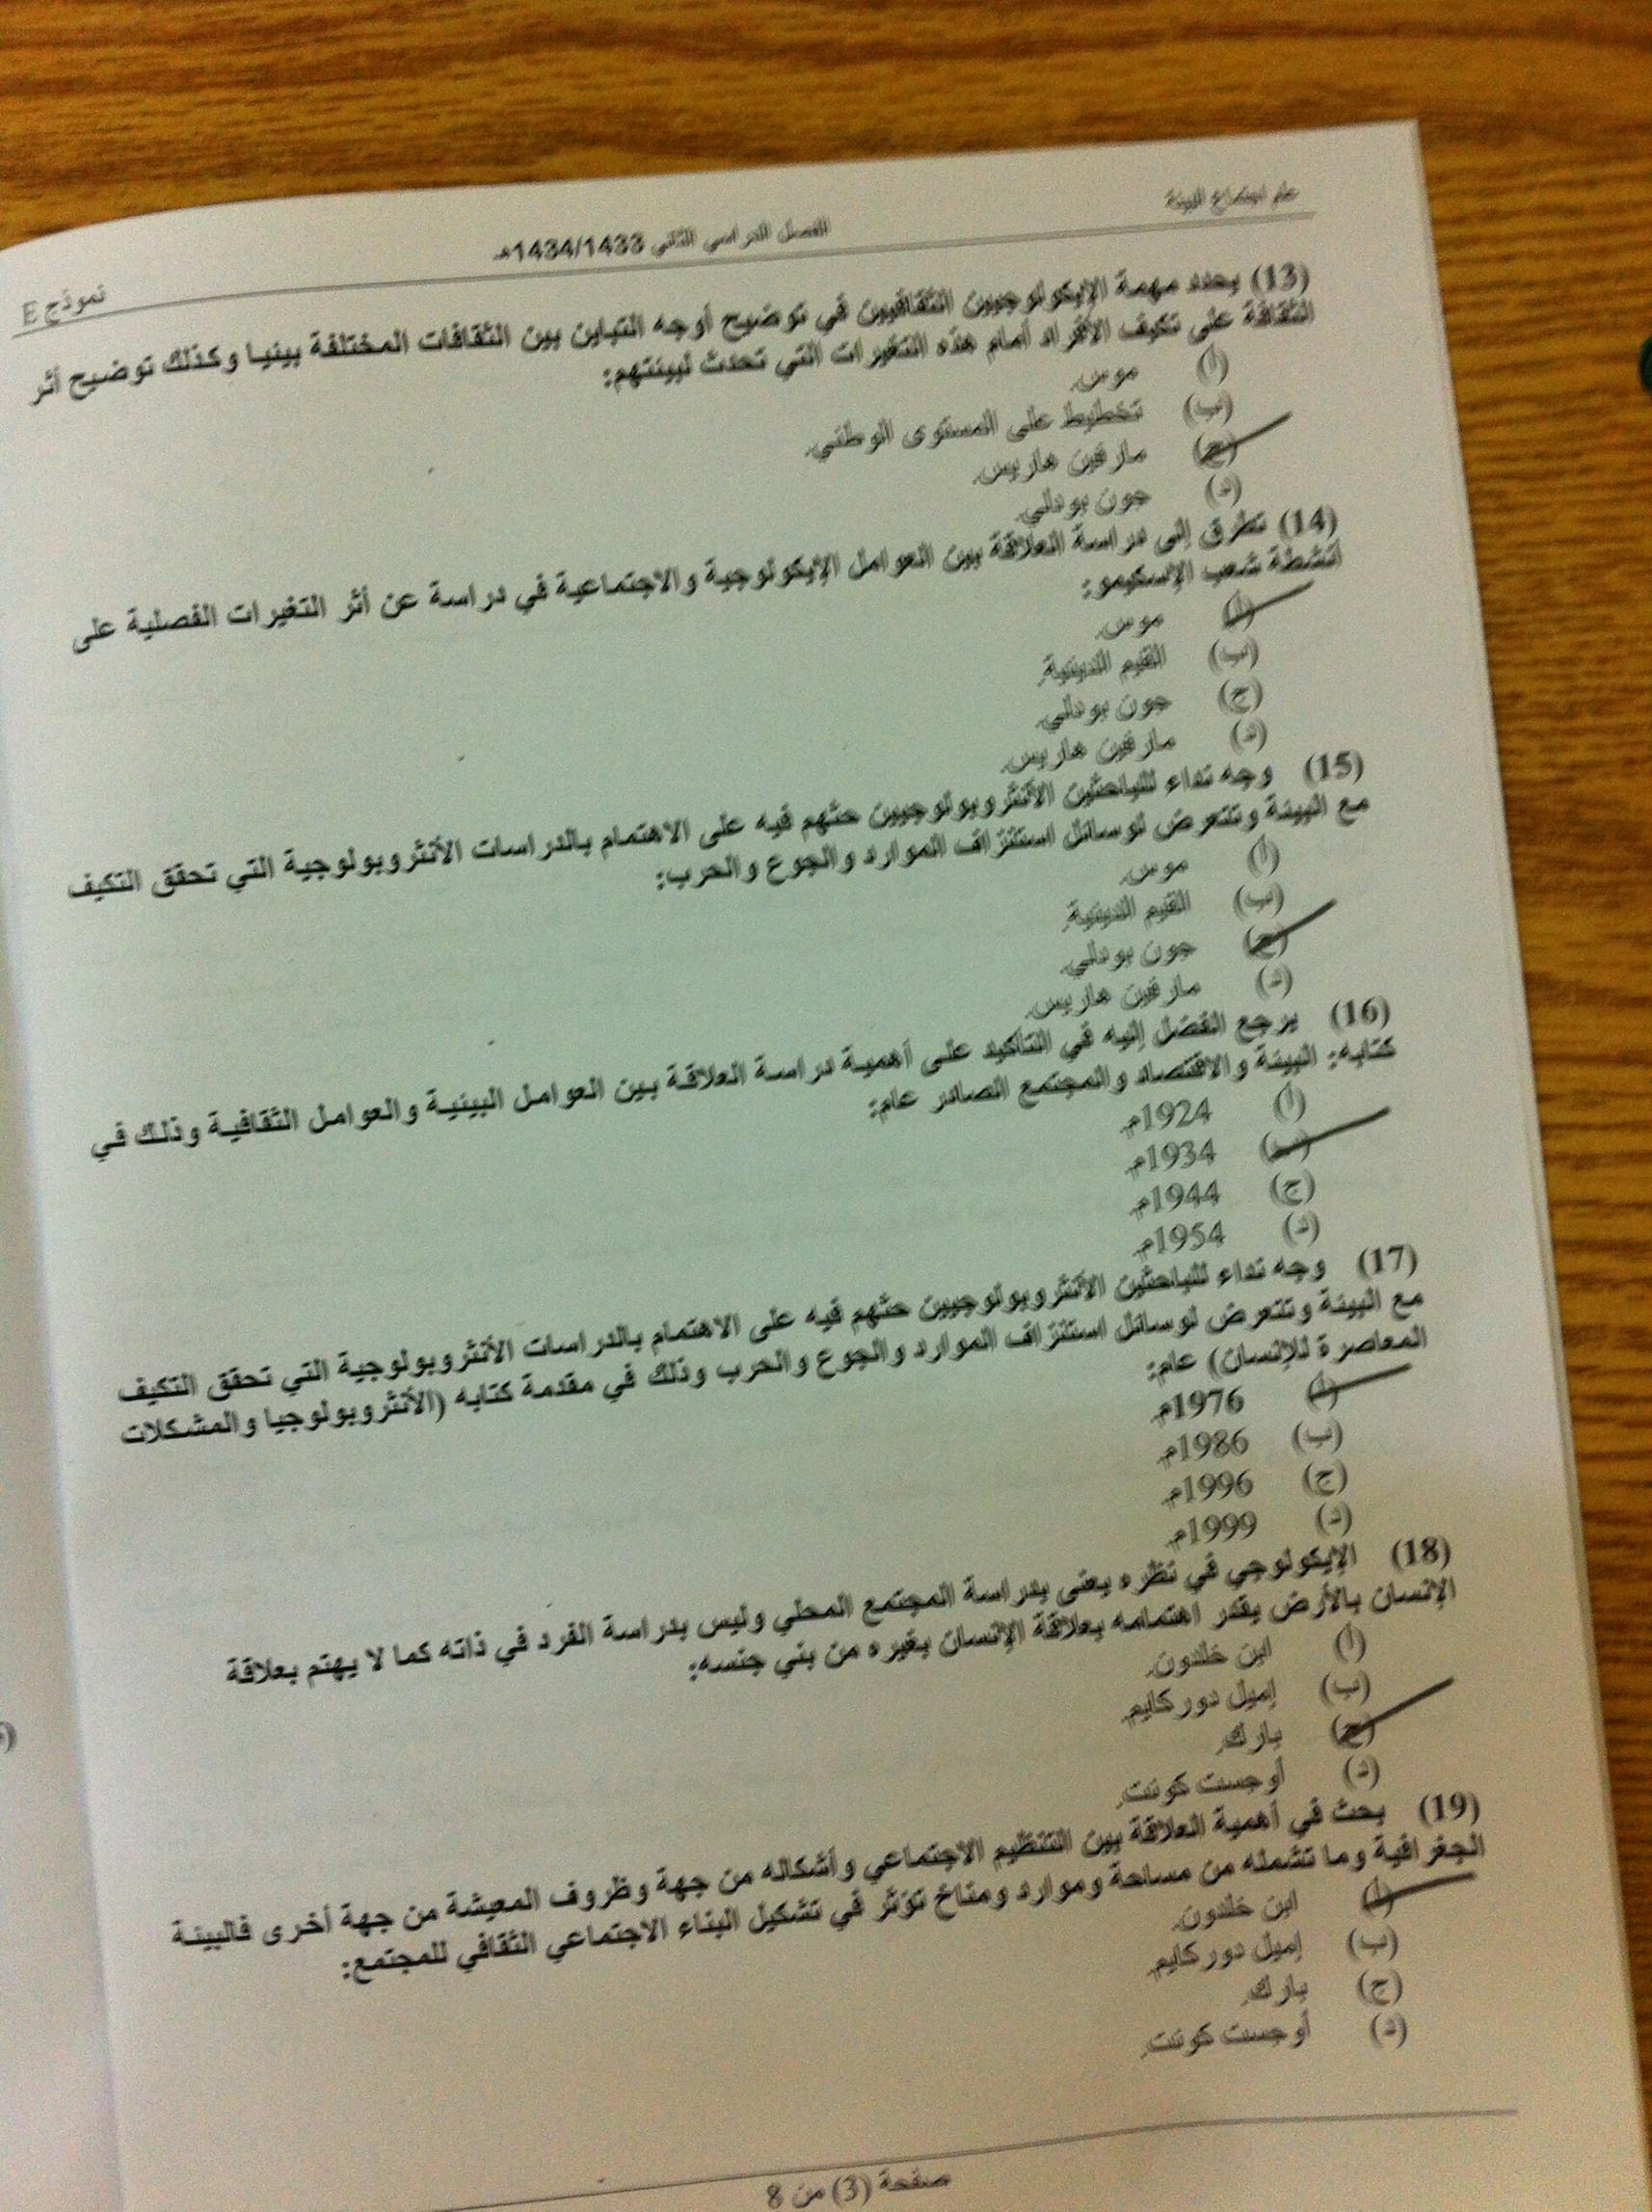 علم اجتماع البيئة
الفصل الدراسي الثاني 1434/1433هـ
نموذج E
(13) يحدد مهمة الإيكولوجيين الثقافيين في توضيح أوجه التباين بين الثقافات المختلفة بينيا وكذلك توضيح أثر
الثقافة على تكيف الأفراد أمام هذه التغيرات التي تحدث لبيئتهم:
(أ) موس.
(ب) تخطيط على المستوى الوطني.
(ج) مارفين هاريس.
(د) جون بودلي.
(14) تطرق إلى دراسة العلاقة بين العوامل الإيكولوجية والاجتماعية في دراسة عن أثر التغيرات الفصلية على
أنشطة شعب الإسكيمو:
(أ) موس.
(ب) القيم الدينية.
(ج) جون بودلي.
(د) مارفين هاريس.
(15) وجه نداء للباحثين الأنثروبولوجيين حثهم فيه على الاهتمام بالدراسات الأنثروبولوجية التي تحقق التكيف
مع البيئة وتتعرض لوسائل استنزاف الموارد والجوع والحرب:
(أ) موس.
(ب) القيم الدينية.
(ج) جون بودلي.
(د) مارفين هاريس.
(16) يرجع الفضل إليه في التأكيد على أهمية دراسة العلاقة بين العوامل البيئية والعوامل الثقافية وذلك في
كتابه: البيئة والاقتصاد والمجتمع الصادر عام:
(أ) 1924م.
(ب) 1934م.
(ج) 1944م.
(د) 1954م.
(17) وجه نداء للباحثين الأنثروبولوجيين حثهم فيه على الاهتمام بالدراسات الأنثروبولوجية التي تحقق التكيف
مع البيئة وتتعرض لوسائل استنزاف الموارد والجوع والحرب وذلك في مقدمة كتابه (الأنثروبولوجيا والمشكلات
المعاصرة للإنسان) عام:
(أ) 1976م.
(ب) 1986م.
(ج) 1996م.
(د) 1999م.
(18) الإيكولوجي في نظره يعنى بدراسة المجتمع المحلي وليس بدراسة الفرد في ذاته كما لا يهتم بعلاقة
الإنسان بالأرض بقدر اهتمامه بعلاقة الإنسان بغيره من بني جنسه:
(أ) ابن خلدون.
(ب) إميل دوركايم.
(ج) بارك.
(د) أوجست كونت.
(19) بحث في أهمية العلاقة بين التنظيم الاجتماعي وأشكاله من جهة وظروف المعيشة من جهة أخرى فالبيئة
الجغرافية وما تشمله من مساحة وموارد ومناخ تؤثر في تشكيل البناء الاجتماعي الثقافي للمجتمع:
(أ) ابن خلدون.
(ب) إميل دوركايم.
(ج) بارك.
(د) أوجست كونت.
صفحة (3) من 8